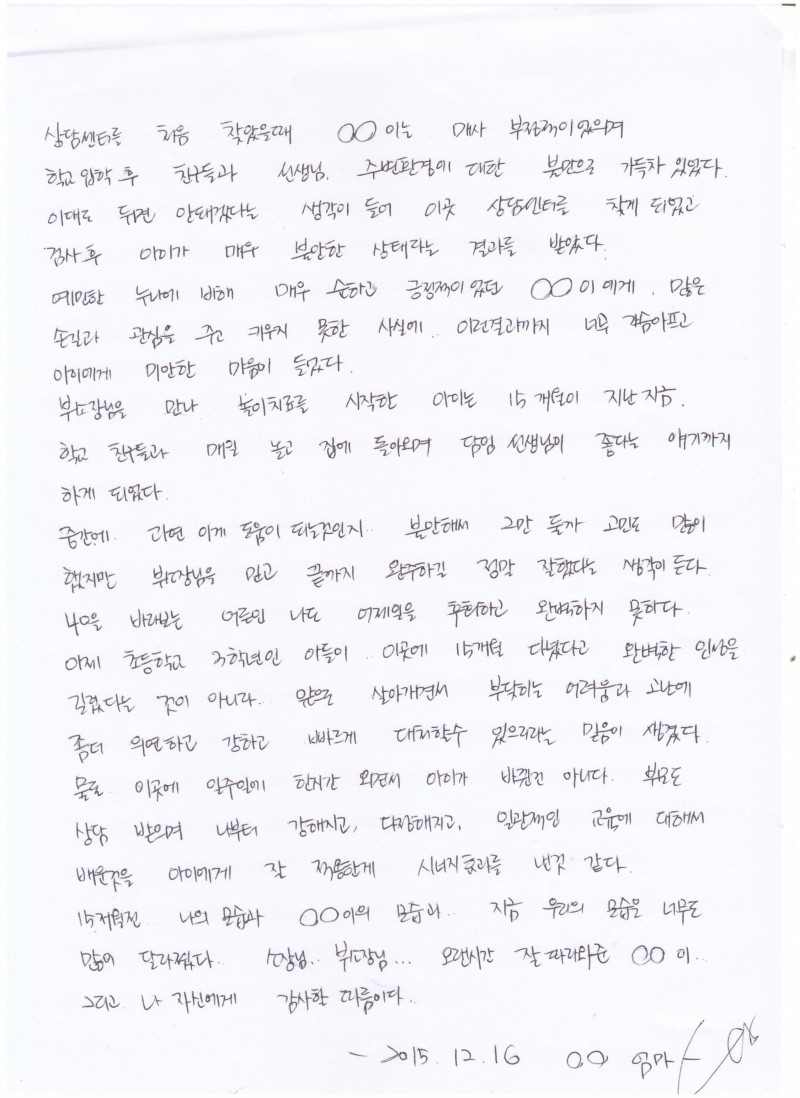 상담센터를 처음 찾았을때 ○○이는.. 매사 부정적이었으며
학교입학 후 친구들과 선생님. 주변환경에 대한 불만으로 가득차 있었다.
이대로 두면 안돼겠다는 생각이 들어 이곳 상담센터를 찾게 되었고
검사후 아이가 매우 불안한 상태라는 결과를 받았다.
예민한 누나에 비해 매우 순하고 긍정적이었던 ○○이에게. 많은
손길과 관심을 주고 키우지 못한 사실에. 이런결과까지 너무 가슴아프고
아이에게 미안한 마음이 들었다.
부소장님을 만나 놀이치료를 시작한 아이는 15개월이 지난지금.
학교 친구들과 매일 놀고 집에 돌아오며 담임 선생님이 좋다는 얘기까지
하게 되었다.
중간에. 과연 이게 도움이 되는것인지.. 불안해서 그만 둘까 고민도 많이
했지만 부소장님을 믿고 끝까지 완주하길 정말 잘했다는 생각이 든다.
40을 바라보는 어른인 나도 어제일을 후회하고 완벽하지 못하다.
이제 초등학교 3학년인 아들이.. 이곳에 15개월 다녔다고 완벽한 인성을
길렀다는 것이 아니라. 앞으로 살아가면서 부딪히는 어려움과 고난에
좀더 의연하고 강하고 빠르게 대처할수 있으리라는 믿음이 생겼다.
물론. 이곳에 일주일에 한시간 오면서 아이가 바뀐건 아니다. 부모도
상담 받으며 나부터 강해지고, 다정해지고, 일관적인 교육에 대해서
배운것을 아이에게 잘 적용한게 시너지효과를 낸것 같다.
15개월전.. 나의 모습과 ○○이의 모습과.. 지금 우리의 모습은 너무도
많이 달라졌다.. 소장님.. 부소장님... 오랜시간 잘 따라와준 ○○이..
그리고 나 자신에게 감사할 따름이다..
- 2015. 12. 16 ○○ 엄마 -